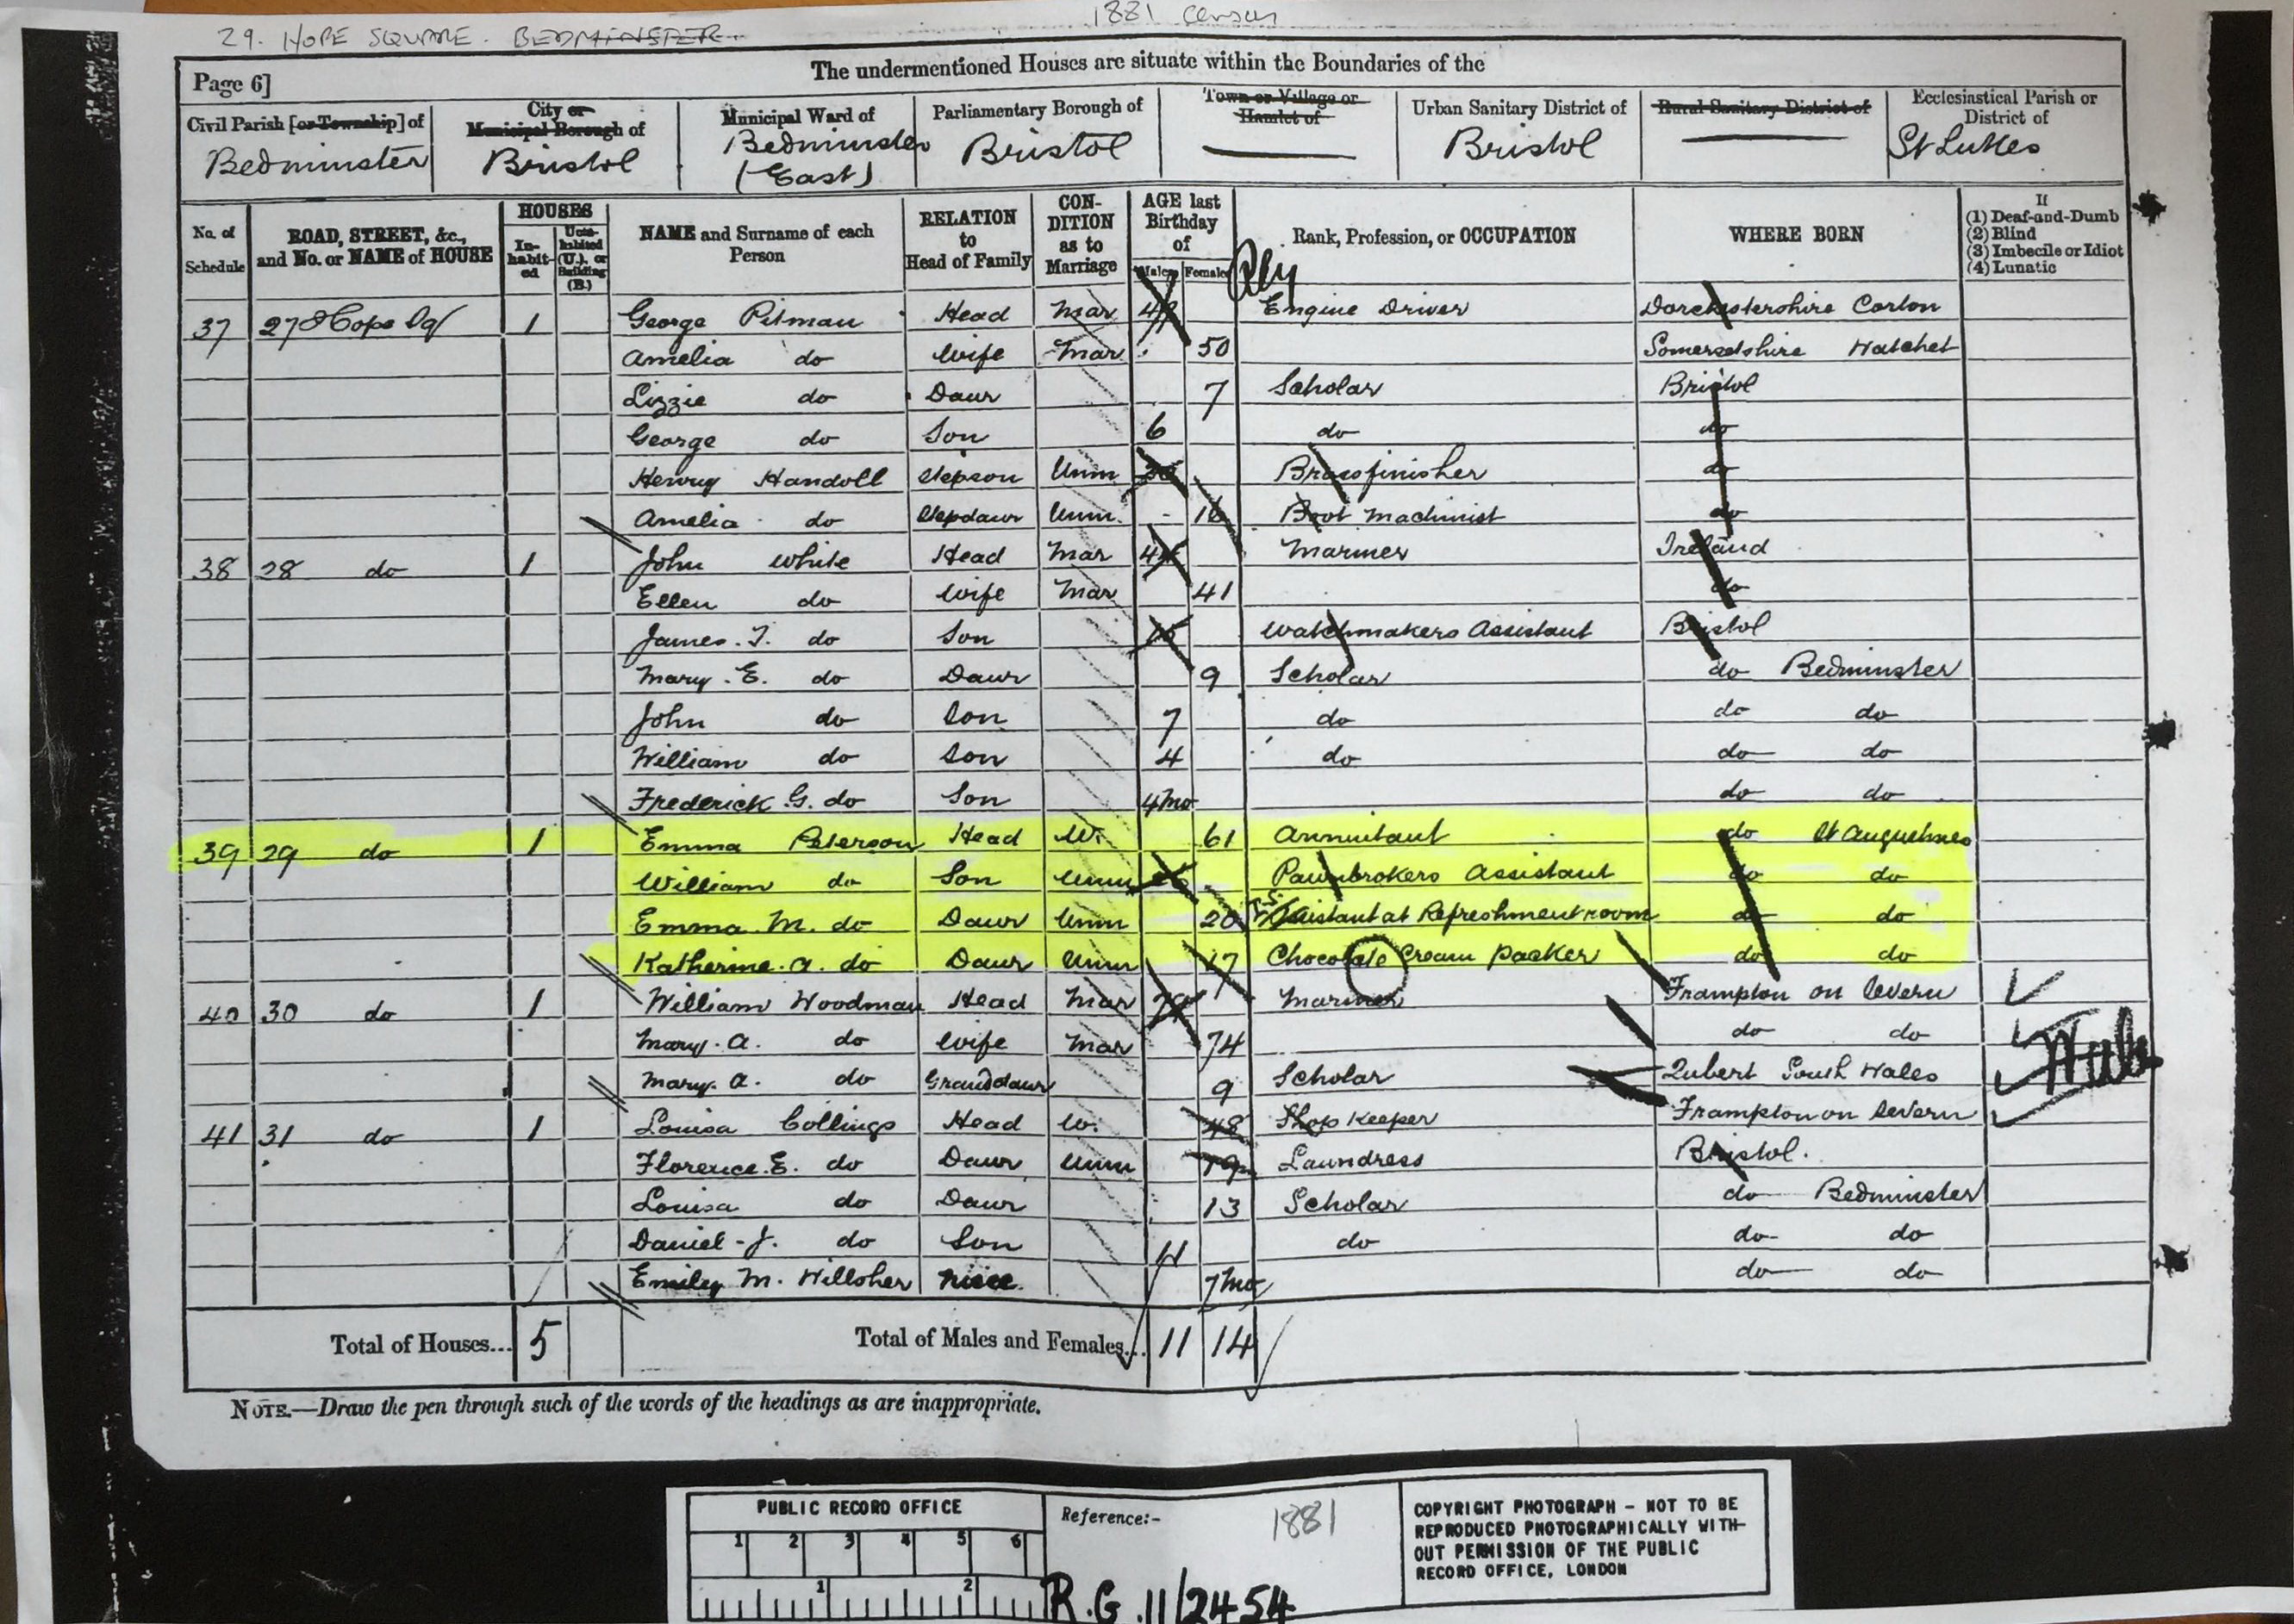 1881 Census
29. HOPE SQUARE. BEDMINSTER
The undermentioned Houses are situate within the Boundaries of the
Page 6]
Civil Parish [or Township] of Bedminster
City or Municipal Borough of Bristol
Municipal Ward of Bedminster (East)
Parliamentary Borough of Bristol
Town or Village or Hamlet of
Urban Sanitary District of Bristol
Rural Sanitary District of
Ecclesiastical Parish or District of St Lukes
No. of Schedule
ROAD, STREET, &c., and No. or NAME of HOUSE
HOUSES
Inhabited
Uninhabited (U.), or Building (B.)
NAME and Surname of each Person
RELATION to Head of Family
CONDITION as to Marriage
AGE last Birthday of
Males Females
Rank, Profession, or OCCUPATION
WHERE BORN
If (1) Deaf-and-Dumb (2) Blind (3) Imbecile or Idiot (4) Lunatic
37 27 Hope Sq 1 George Pitman Head Mar Engine Driver Dorchestershire Corton
Amelia do Wife Mar 50 Somersetshire Watchet
Lizzie do Daur 7 Scholar Bristol
George do Son 6 do do
Henry Handoll Stepson Unm Brassfinisher do
Amelia do Stepdaur Unm 16 Boot Machinist do
38 28 do 1 John White Head Mar Mariner Ireland
Ellen do Wife Mar 41 do
James. T. do Son Watchmakers Assistant Bristol
Mary. E. do Daur 9 Scholar do Bedminster
John do Son 7 do do do
William do Son 4 do do do
Frederick G. do Son 4mo do do
39 29 do 1 Emma Peterson Head W. 61 Annuitant do St Augustines
William do Son Unm Pawnbrokers Assistant do do
Emma M. do Daur Unm 20 Assistant at Refreshment room do do
Katherine. A. do Daur Unm 17 Chocolate Cream Packer do do
40 30 do 1 William Woodman Head Mar Mariner Frampton on Severn
Mary. A. do Wife Mar 74 do do
Mary. A. do Granddaur 9 Scholar South Wales
41 31 do 1 Louisa Collings Head W. 48 Shop Keeper Frampton on Severn
Florence. E. do Daur Unm 19 Laundress Bristol.
Louisa do Daur 13 Scholar do Bedminster
Daniel - J. do Son 11 do do do
Emily M. Willsher niece 7mo do do
Total of Houses... 5 Total of Males and Females... 11 14
NOTE.—Draw the pen through such of the words of the headings as are inappropriate.
PUBLIC RECORD OFFICE
1 2 3 4 5 6
1 2
Reference:-
1881
R.G. 11/2454
COPYRIGHT PHOTOGRAPH - NOT TO BE
REPRODUCED PHOTOGRAPHICALLY WITH-
OUT PERMISSION OF THE PUBLIC
RECORD OFFICE, LONDON